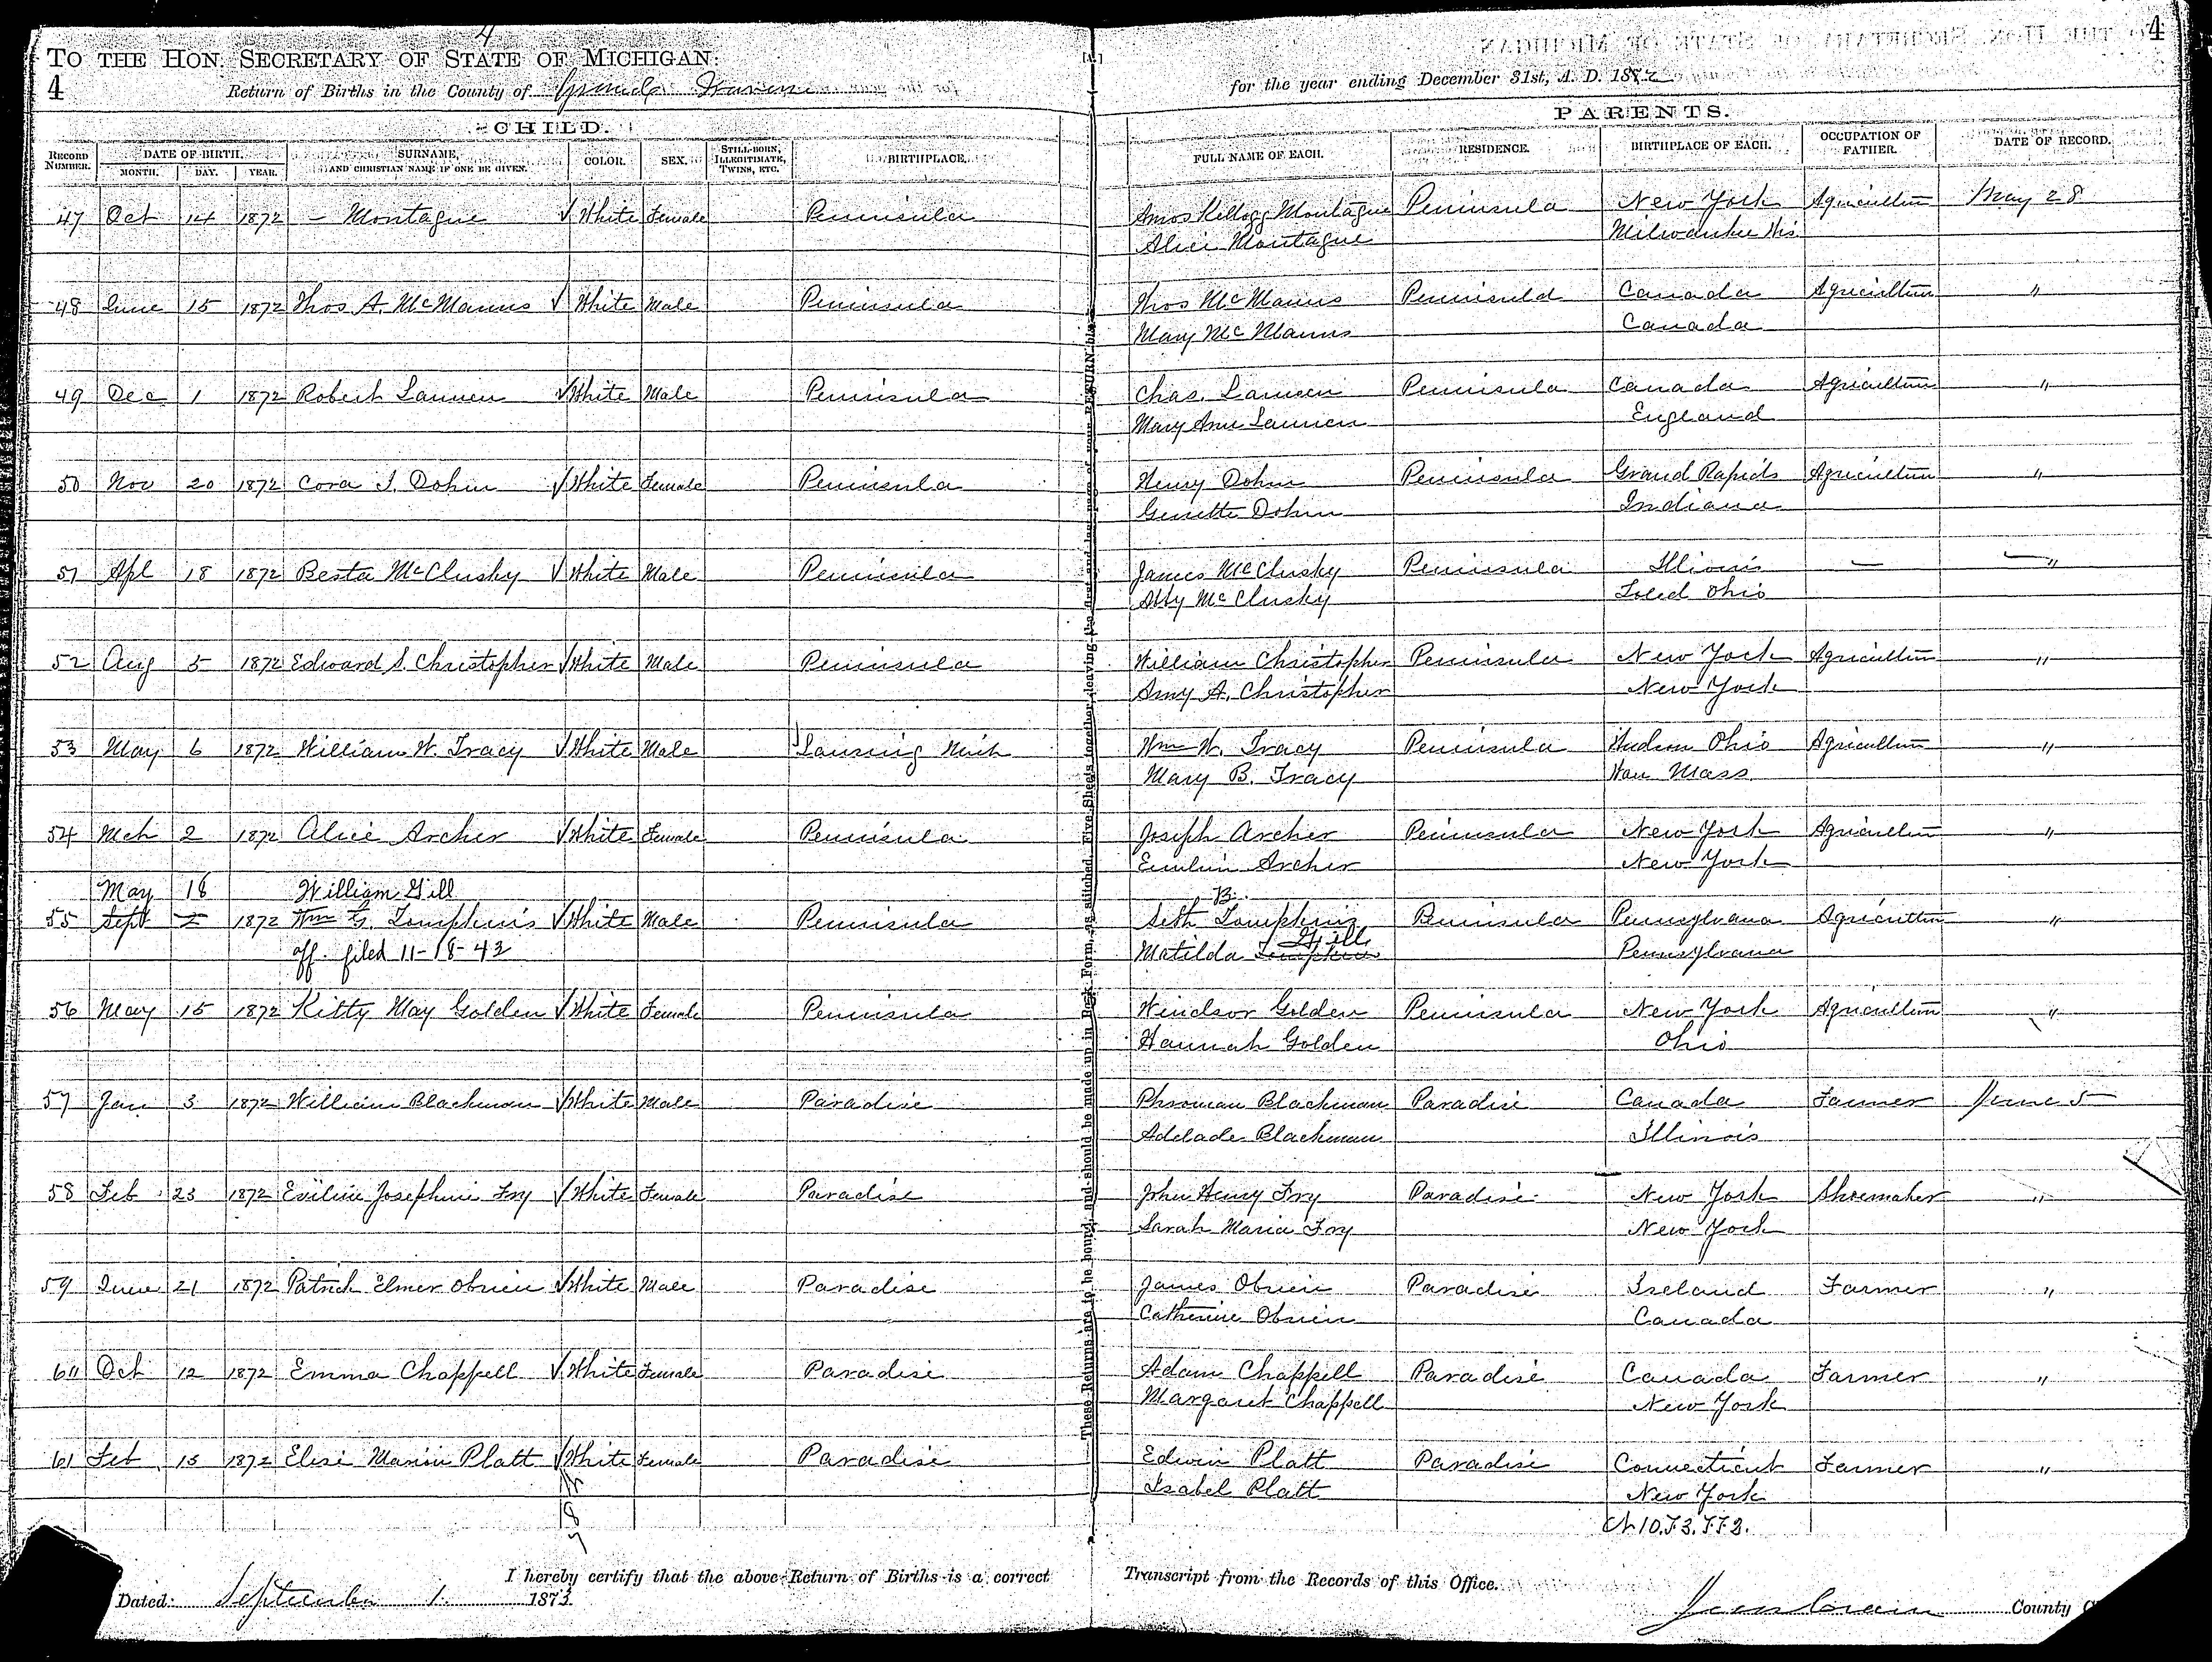 4
TO THE HON. SECRETARY OF STATE OF MICHIGAN:
4
4 Return of Births in the County of Grand Traverse for the year ending December 31st, A. D. 1872
CHILD. PARENTS.
RECORD NUMBER. DATE OF BIRTH. MONTH. DAY. YEAR. SURNAME, AND CHRISTIAN NAME IF ONE BE GIVEN. COLOR. SEX. STILL-BORN, ILLEGITIMATE, TWINS, ETC. BIRTHPLACE. FULL NAME OF EACH. RESIDENCE. BIRTHPLACE OF EACH. OCCUPATION OF FATHER. DATE OF RECORD.
47 Oct 14 1872 — Montague √ White Female Peninsula Amos Kellogg Montague Peninsula New York Agriculture May 28
Alice Montague Milwaukee Wis
48 June 15 1872 Thos A. McManus √ White Male Peninsula Thos McManus Peninsula Canada Agriculture "
Mary McManus Canada
49 Dec 1 1872 Robert Lannen √ White Male Peninsula Chas. Lannen Peninsula Canada Agriculture "
Mary Ann Lannen England
50 Nov 20 1872 Cora I. Dohm √ White Female Peninsula Henry Dohm Peninsula Grand Rapids Agriculture "
Genette Dohm Indiana
51 Apl 18 1872 Besta McClusky √ White Male Peninsula James McClusky Peninsula Illinois — "
Abby McClusky Toled Ohio
52 Aug 5 1872 Edward S. Christopher √ White Male Peninsula William Christopher Peninsula New York Agriculture "
Amy A. Christopher New York
53 May 6 1872 William W. Tracy √ White Male Lansing Mich Wm W. Tracy Peninsula Hudson Ohio Agriculture "
Mary B. Tracy Mass
54 Mch 2 1872 Alice Archer √ White Female Peninsula Joseph Archer Peninsula New York Agriculture "
Archer New York
May 18 William Gill B.
55 Sept 2 1872 Wm G. Tompkins √ White Male Peninsula Seth Tompkins Peninsula Pennsylvana Agriculture "
aff. filed 11-18-43 Matilda Tompkins Gill Pennsylvana
56 May 15 1872 Kitty May Golden √ White Female Peninsula Windsor Golden Peninsula New York Agriculture "
Hannah Golden Ohio
57 Jan 3 1872 William Blackman √ White Male Paradise Blackman Paradise Canada Farmer June 5
Adelade Blackman Illinois
58 Feb 23 1872 Eviline Josephine Fry √ White Female Paradise John Henry Fry Paradise New York Shoemaker "
Sarah Maria Fry New York
59 June 21 1872 Patrick Elmer Obrien √ White Male Paradise James Obrien Paradise Ireland Farmer "
Catherine Obrien Canada
60 Oct 12 1872 Emma Chappell √ White Female Paradise Adam Chappell Paradise Canada Farmer "
Margaret Chappell New York
61 Feb 15 1872 Elsie Marion Platt √ White Female Paradise Edwin Platt Paradise Connecticut Farmer "
Isabel Platt New York
These Returns are to be bound, and should be made up in Book Form, as stitched
I hereby certify that the above Return of Births is a correct Transcript from the Records of this Office.
Dated: September 1. 1873 County